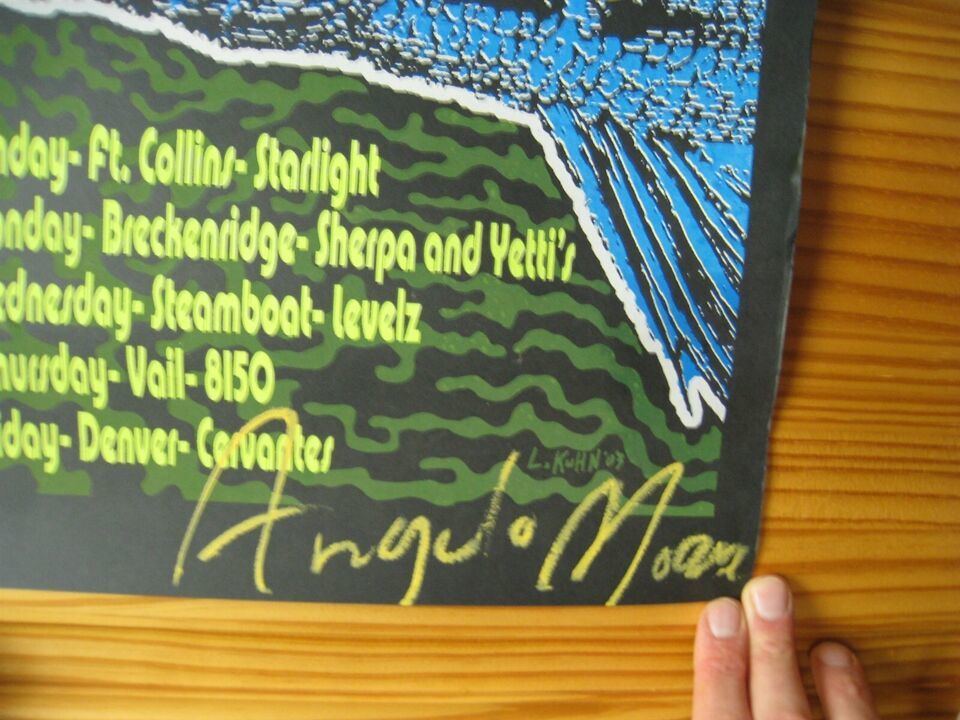 nday- Ft. Collins- Starlight
onday- Breckenridge- Sherpa and Yetti's
ednesday- Steamboat- Levelz
hursday- Vail- 8150
iday- Denver- Cervantes
L. KUHN '03
Angelo Moore